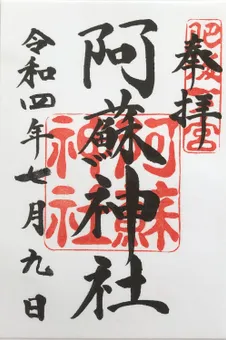 奉拝
肥後一宮
阿蘇神社
阿蘇神社
令和四年七月九日